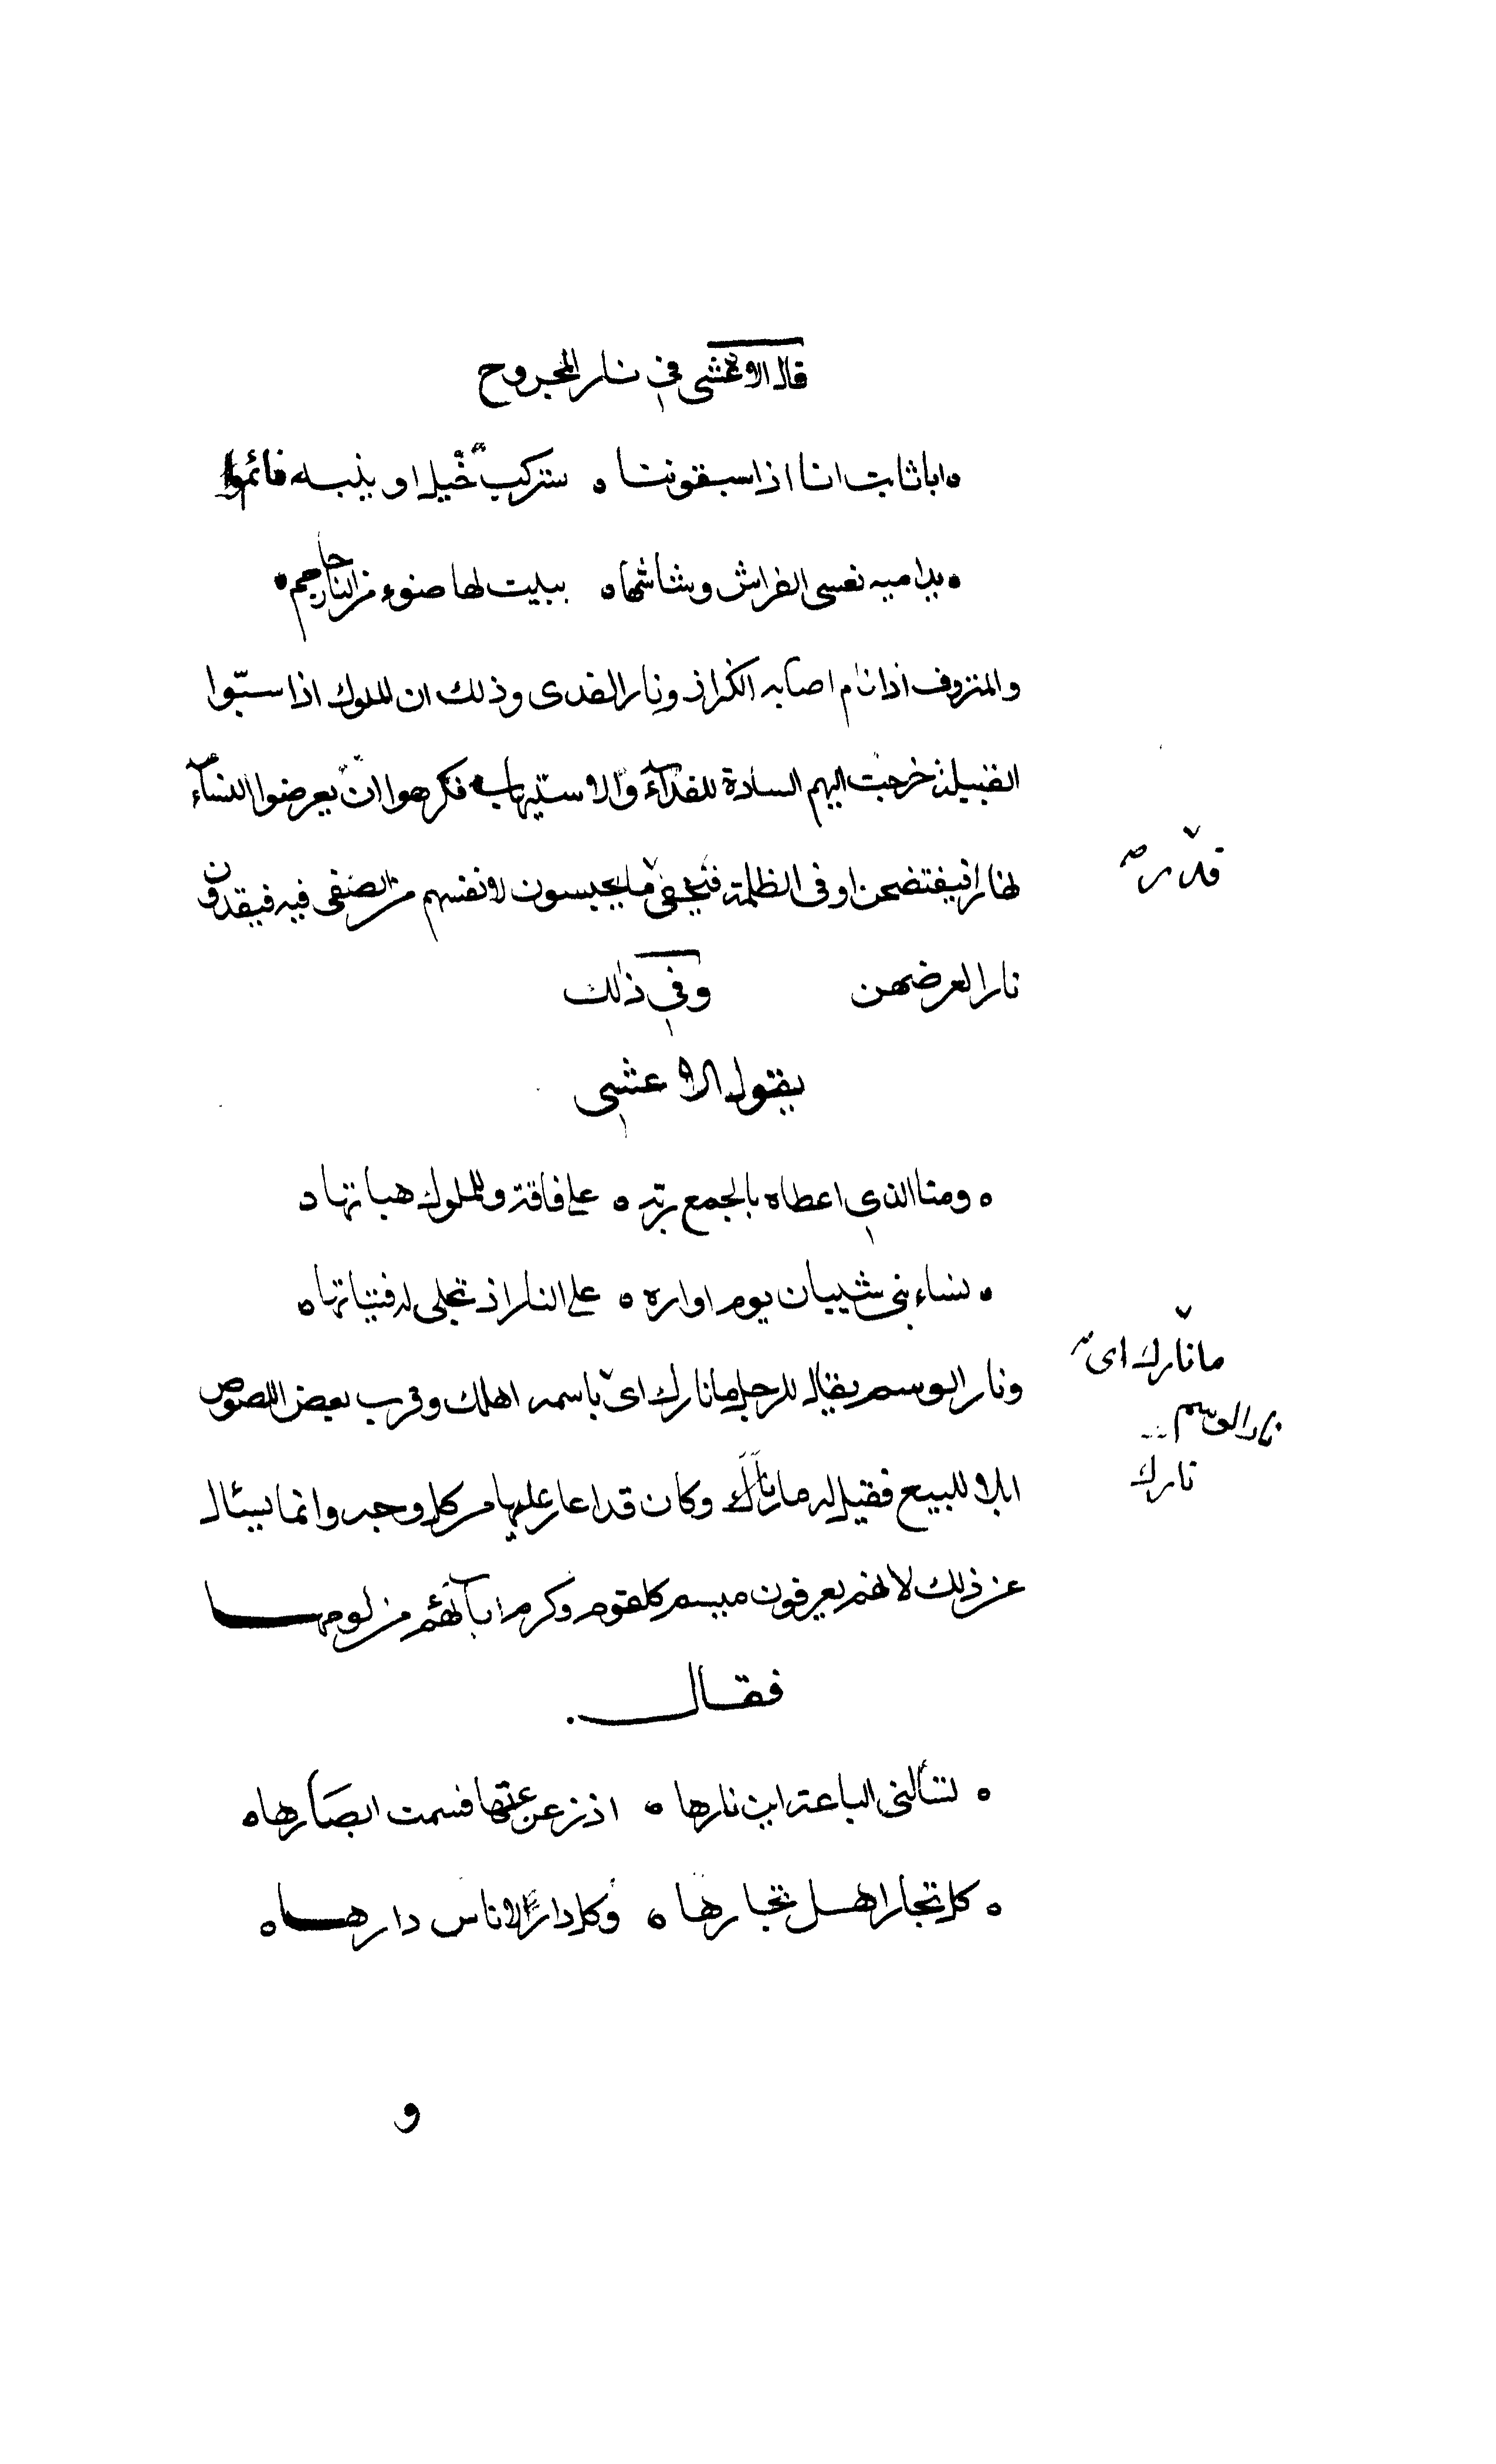 قال الاعشى في نار المجروح
اباثابت انا اذا سبقوننا ستركب خيل او ينبه قائم
بداميه نغسى الفراش وشاشها يبيت لها ضوء من النار جاحم
والمنزوف اذا نام اصابه الكزاز ونار الفدى وذلك ان الملوك اذا سبّوا
القبيلة خرجت اليهم السادة للفدآء والاستيهاب فكرهوا ان يعرضوا النسآء
نهارا فيفتضحن او فى الظلمة فيخفى ما يحبسون لانفسهم من الصفى فيه فيقدون
نارا لعرضهن وفي ذلك
يقول الاعشى
ومنا الذي اعطاه بالجمع ربّه على فاقة وللملوك هباتها
نساء بنى شيبان يوم اواره على النار اذ تجلى له فتياتها
ونار الوسم يقال للرجل ما نارك اى باسمه اهلك وقرب بعض اللصوص
ما نارك اى
نار الوسم
ابلا للبيع فقيل له ما نارك وكان قد اعار عليها من كل وجه وانما يسئال
نارك
عن ذلك لانهم يعرفون ميسم كل قوم وكرم ابآئهم من لومها
فقال
تسألنى الباعة اين نارها اذ زعزعتها فسمت ابصارها
كل تجار اهل تجارها وكل دار لاناس دارها
و